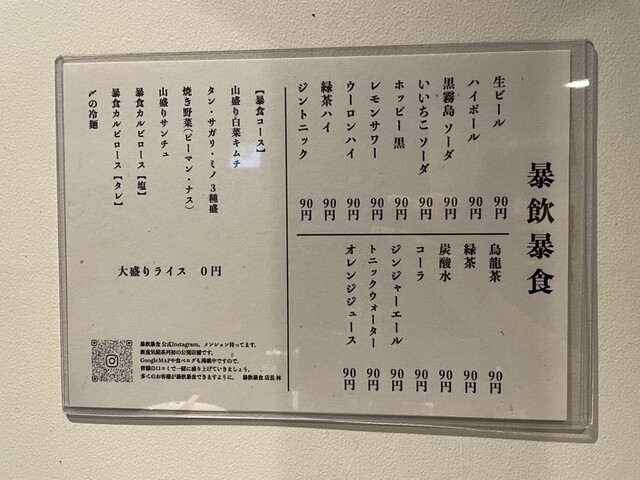 暴飲暴食
生ビール 90円
ハイボール 90円
黒霧島 ソーダ 90円
いいちこ ソーダ 90円
ホッピー黒 90円
レモンサワー 90円
ウーロンハイ 90円
緑茶ハイ 90円
ジントニック 90円
烏龍茶 90円
緑茶 90円
炭酸水 90円
コーラ 90円
ジンジャーエール 90円
トニックウォーター 90円
オレンジジュース 90円
【暴食コース】
山盛り白菜キムチ
タン・サガリ・ミノ 3種盛
焼き野菜(ピーマン・ナス)
山盛りサンチュ
暴食カルビロース【塩】
暴食カルビロース【タレ】
〆の冷麺
大盛りライス 0円
暴飲暴食 公式Instagram。メンション待ってます。
GoogleMAPや食べログも掲載中ですので、
皆様の口コミで一緒に盛り上げていきましょう。
多くのお客様が暴飲暴食できますように。 暴飲暴食 店長 林